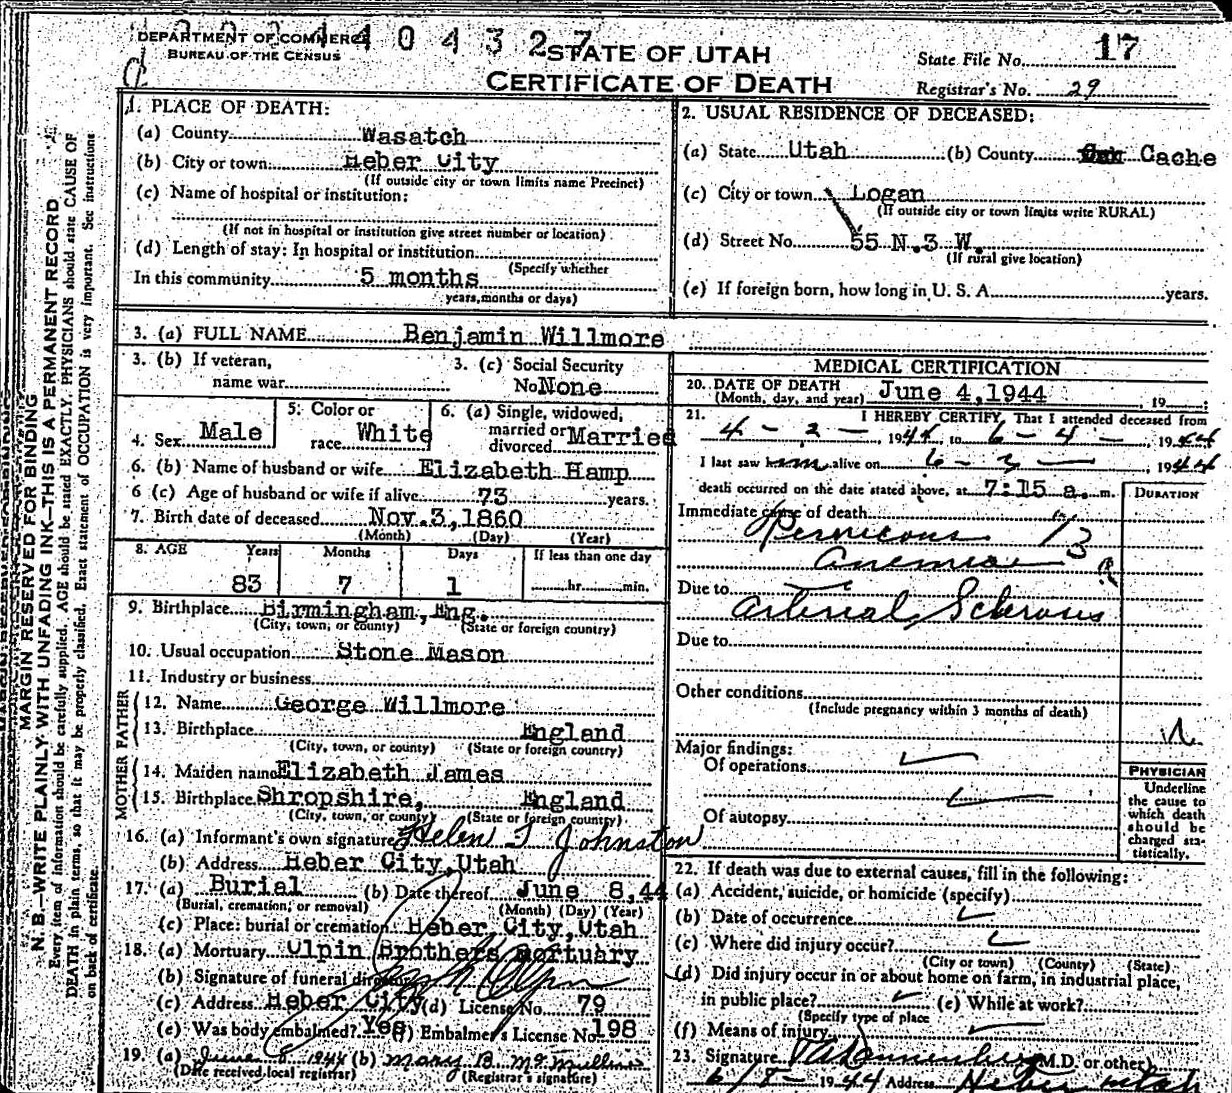 DEPARTMENT OF COMMERCE
BUREAU OF THE CENSUS
404327
STATE OF UTAH
CERTIFICATE OF DEATH
State File No. 17
Registrar's No. 29
MARGIN RESERVED FOR BINDING
N. B.—WRITE PLAINLY WITH UNFADING INK—THIS IS A PERMANENT RECORD
Every item of information should be carefully supplied. AGE should be stated EXACTLY. PHYSICIANS should state CAUSE OF
DEATH in plain terms, so that it may be properly classified. Exact statement of OCCUPATION is very important. See instructions
on back of certificate.
1. PLACE OF DEATH:
(a) County Wasatch
(b) City or town Heber City
(If outside city or town limits name Precinct)
(c) Name of hospital or institution:
(If not in hospital or institution give street number or location)
(d) Length of stay: In hospital or institution
(Specify whether
In this community 5 months
years, months or days)
2. USUAL RESIDENCE OF DECEASED:
(a) State Utah (b) County Cache
(c) City or town Logan
(If outside city or town limits write RURAL)
(d) Street No. 55 N. 3 W.
(If rural give location)
(e) If foreign born, how long in U. S. A. years.
3. (a) FULL NAME Benjamin Willmore
3. (b) If veteran,
name war
3. (c) Social Security
No. None
4. Sex Male
5. Color or
race White
6. (a) Single, widowed,
married or
divorced Married
6. (b) Name of husband or wife Elizabeth Hamp
6 (c) Age of husband or wife if alive 73 years.
7. Birth date of deceased Nov. 3, 1860
(Month) (Day) (Year)
8. AGE Years Months Days If less than one day
83 7 1 hr. min.
9. Birthplace Birmingham, Eng.
(City, town, or county) (State or foreign country)
10. Usual occupation Stone Mason
11. Industry or business
FATHER
12. Name George Willmore
13. Birthplace England
(City, town, or county) (State or foreign country)
MOTHER
14. Maiden name Elizabeth James
15. Birthplace Shropshire, England
(City, town, or county) (State or foreign country)
16. (a) Informant's own signature Helen T Johnston
(b) Address Heber City, Utah
17. (a) Burial (b) Date thereof June 8, 44
(Burial, cremation, or removal) (Month) (Day) (Year)
(c) Place: burial or cremation Heber City, Utah
18. (a) Mortuary Olpin Brothers Mortuary
(b) Signature of funeral director Olpin
(c) Address Heber City (d) License No. 79
(e) Was body embalmed? Yes (f) Embalmer's License No. 198
19. (a) June 8 1944 (b) Mary B. McMullin
(Date received local registrar) (Registrar's signature)
MEDICAL CERTIFICATION
20. DATE OF DEATH June 4, 1944
(Month, day, and year) 19
21. I HEREBY CERTIFY, That I attended deceased from
4 - 2 - , 1944 to 6 - 4 - , 1944
I last saw him alive on 6 - 3 - , 1944
death occurred on the date stated above, at 7:15 a. m.
DURATION
Immediate cause of death
Pernicous
anemia
Due to
Arterial Sclerosis
Due to
Other conditions
(Include pregnancy within 3 months of death)
Major findings:
Of operations
Of autopsy
PHYSICIAN
Underline
the cause to
which death
should be
charged sta-
tistically.
22. If death was due to external causes, fill in the following:
(a) Accident, suicide, or homicide (specify)
(b) Date of occurrence
(c) Where did injury occur?
(City or town) (County) (State)
(d) Did injury occur in or about home on farm, in industrial place,
in public place? (e) While at work?
(Specify type of place
(f) Means of injury
23. Signature (M.D. or other)
6/8 - 1944 Address Heber Utah